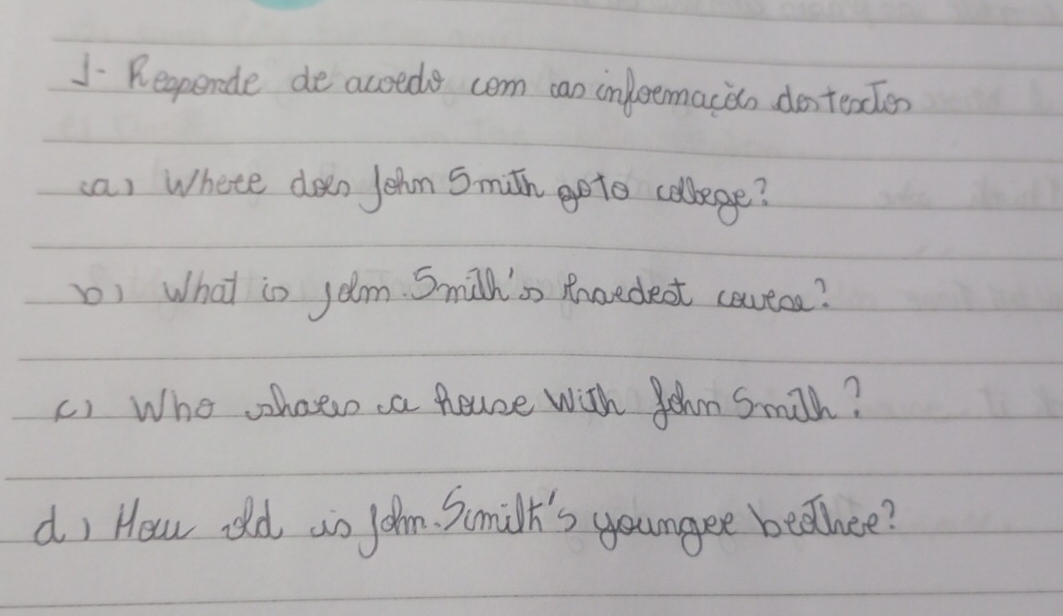 1- Responde de acordo com as informações dos textos
a) Where does John Smith go to college?
b) What is John Smith's hardest course?
c) Who shares a house with John Smith?
d) How old is John Smith's younger brother?